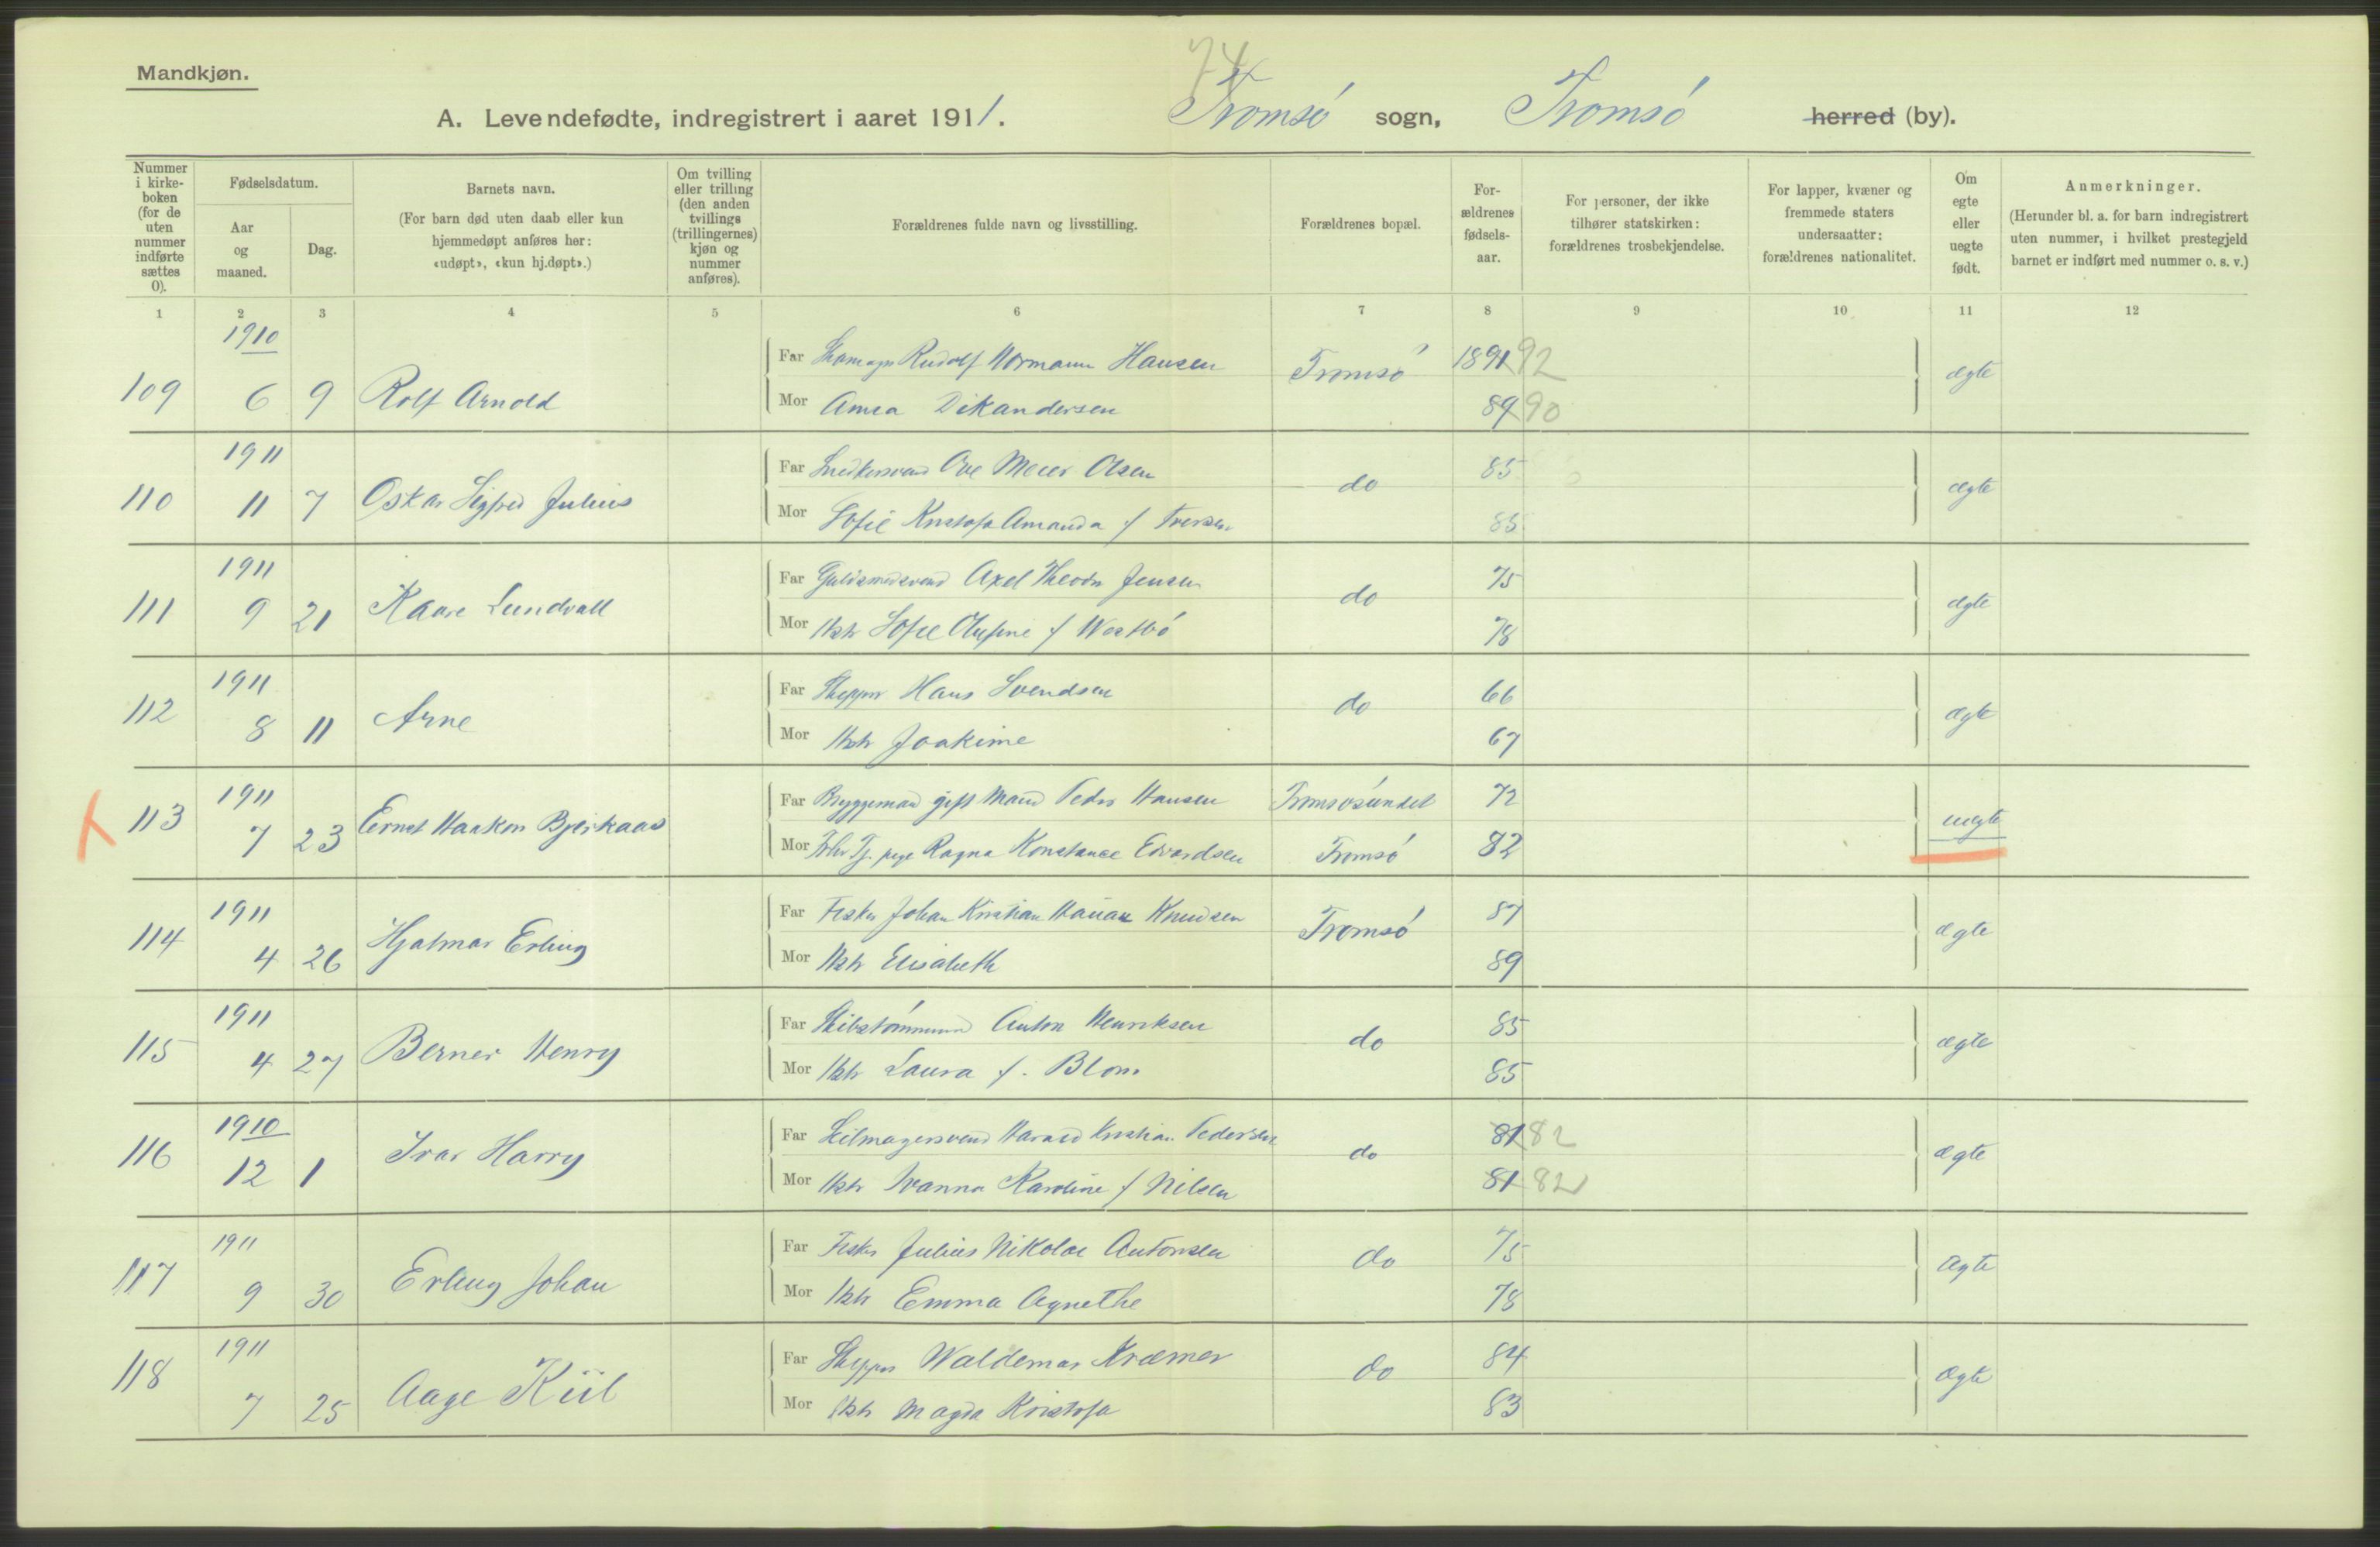 Mandkjøn.
74
A. Levendefødte, indregistrert i aaret 1911. Tromsø sogn, Tromsø herred (by).
Nummer i kirke-boken (for de uten nummer indførte sættes 0).
Fødselsdatum.
Aar og maaned.
Dag.
Barnets navn.
(For barn død uten daab eller kun hjemmedøpt anføres her: «udøpt», «kun hj.døpt».)
Om tvilling eller trilling (den anden tvillings (trillingernes) kjøn og nummer anføres).
Forældrenes fulde navn og livsstilling.
Forældrenes bopæl.
For-ældrenes fødsels-aar.
For personer, der ikke tilhører statskirken: forældrenes trosbekjendelse.
For lapper, kvæner og fremmede staters undersaatter: forældrenes nationalitet.
Om egte eller uegte født.
Anmerkninger.
(Herunder bl. a. for barn indregistrert uten nummer, i hvilket prestegjeld barnet er indført med nummer o. s. v.)
1 2 3 4 5 6 7 8 9 10 11 12
1910
109 6 9 Rolf Arnold
Far Rudolf Normann Hansen Tromsø 1891 92 ægte
Mor 89 90
1911
110 11 7 Oskar Sigfred Julius
Far Snedkersvend Ove Meier Olsen do 85 ægte
Mor Sofie Kristofa Amanda f Iversen 85
1911
111 9 21 Kaare Lundvall
Far Guldsmedsvend Axel Theodor Jensen do 75 ægte
Mor Hstr Sofie Olufine f Westbø 78
1911
112 8 11 Arne
Far Skipper Hans Svendsen do 66 ægte
Mor Hstr Joakime 67
1911
113 7 23 Ernst Haakon Bjerkaas
Far Bryggemand gift Mand Peder Hansen Tromsøsundet 72 uegte
Mor pige Ragna Konstance Edvardsen Tromsø 82
1911
114 4 26 Hjalmar Erling
Far Fisker Johan Kristian Knudsen Tromsø 87 ægte
Mor Hstr Elisabeth 89
1911
115 4 27 Berner Henry
Far Skibstømmermand Anton Henriksen do 85 ægte
Mor Hstr Laura f. Blom 85
1910
116 12 1 Ivar Harry
Far Seilmagersvend Harald Kristian Pedersen do 81 82 ægte
Mor Hstr Ivanna Karoline f Nilsen 81 82
1911
117 9 30 Erling Johan
Far Fisker Julius Nikolai Antonsen do 75 ægte
Mor Hstr Emma Agnethe 78
1911
118 7 25 Aage Kiil
Far Skipper Waldemar Kræmer do 84 ægte
Mor Hstr Magda Kristofa 83